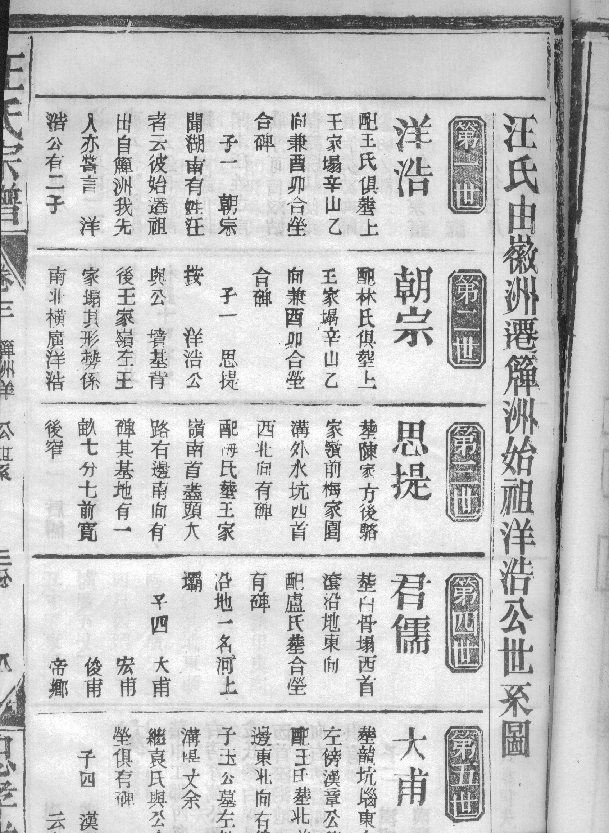 汪氏由徽洲遷簰洲始祖洋浩公世系圖
第一世
洋浩
配王氏俱塟上
王家塌辛山乙
向兼酉卯合塋
合碑
子一 朝宗
聞湖南有姓汪
者云彼始遷祖
出自簰洲我先
人亦嘗言 洋
浩公有二子
第二世
朝宗
配林氏俱塟上
王家塌辛山乙
向兼酉卯合塋
合碑
子一 思提
按 洋浩公
與公 墳基背
後王家嶺左王
家塌其形勢係
南北橫廣洋浩
第三世
思提
塟陳家方後駱
家嶺前梅家園
溝外水坑西首
西北向有碑
配梅氏塟王家
嶺南首盡頭大
路右邊南向有
碑其基地有一
畝七分七前寬
後窄
第四世
君儒
塟白骨塌西首
滾沿地東向
配盧氏塟合塋
有碑
沿地一名河上
壩
子四 大甫
宏甫
俊甫
帝鄉
第五世
大甫
塟龍坑堖東
左傍漢章公
配王氏塟北
邊東北向有
子玉公墓左
溝 丈余
繼袁氏與公
塋俱有碑
子四 漢
云
汪氏宗譜
卷三 簰洲洋 公世系